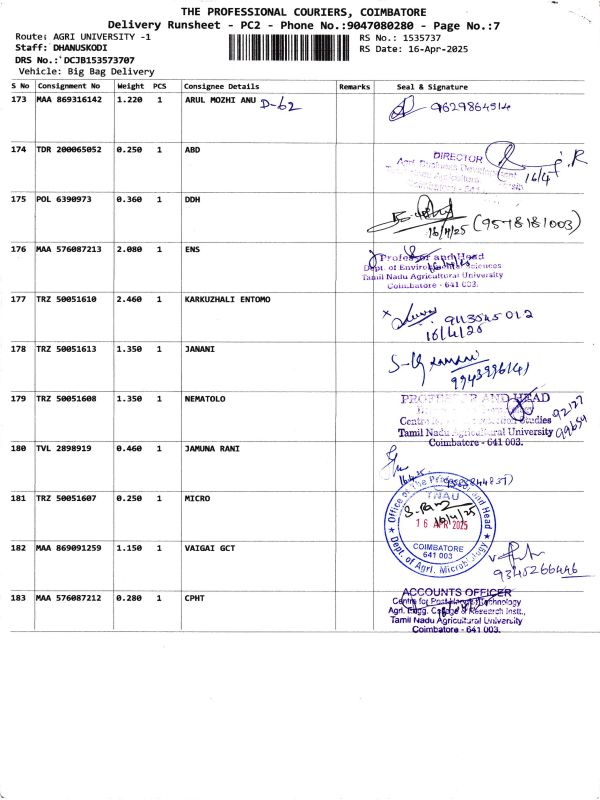 THE PROFESSIONAL COURIERS, COIMBATORE
Delivery Runsheet - PC2 - Phone No.:9047080280 - Page No.:7
Route: AGRI UNIVERSITY -1
Staff: DHANUSKODI
DRS No.: DCJB153573707
Vehicle: Big Bag Delivery
RS No.: 1535737
RS Date: 16-Apr-2025
S No Consignment No Weight PCS Consignee Details Remarks Seal & Signature
173 MAA 869316142 1.220 1 ARUL MOZHI ANU D-62
9629864514
174 TDR 200065052 0.250 1 ABD
DIRECTOR
16/4
175 POL 6390973 0.360 1 DDH
16/4/25 (9578181003)
176 MAA 576087213 2.080 1 ENS
Professor and Head
Dept. of Environmental Sciences
Tamil Nadu Agricultural University
Coimbatore - 641 003.
177 TRZ 50051610 2.460 1 KARKUZHALI ENTOMO
9113545012
16/4/25
178 TRZ 50051613 1.350 1 JANANI
9943996141
179 TRZ 50051608 1.350 1 NEMATOLO
PROFESSOR AND HEAD
Studies
Tamil Nadu Agricultural University
Coimbatore - 641 003.
180 TVL 2898919 0.460 1 JAMUNA RANI
181 TRZ 50051607 0.250 1 MICRO
Office of the Professor and Head
TNAU
16 APR 2025
COIMBATORE
641 003
Dept. of Agrl. Microbiology
182 MAA 869091259 1.150 1 VAIGAI GCT
9345266446
183 MAA 576087212 0.280 1 CPHT
ACCOUNTS OFFICER
Centre for Post Harvest Technology
Agri. Engg. College & Research Instt.,
Tamil Nadu Agricultural University
Coimbatore - 641 003.